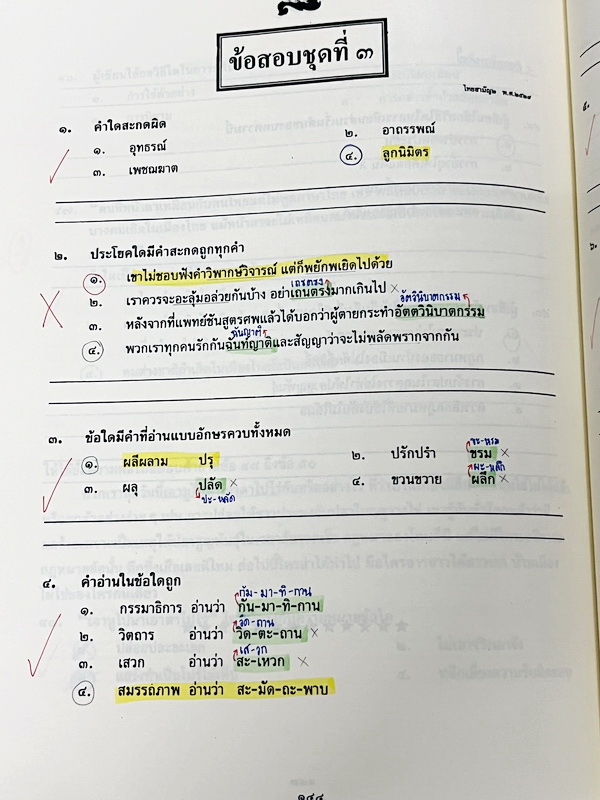 ข้อสอบชุดที่ ๓
ไทยสามัญ๒ พ.ศ.๒๕๒๗
๑. คำใดสะกดผิด
๑. อุทธรณ์ ๒. อาถรรพณ์
๓. เพชฌฆาต ๔. ลูกนิมิตร
๒. ประโยคใดมีคำสะกดถูกทุกคำ
๑. เขาไม่ชอบฟังคำวิพากษ์วิจารณ์ แต่ก็พยักพเยิดไปด้วย
เถรตรง
๒. เราควรจะอะลุ้มอล่วยกันบ้าง อย่าเถนตรงมากเกินไป ×
อัตวินิบาตกรรม
๓. หลังจากที่แพทย์ชันสูตรศพแล้วได้บอกว่าผู้ตายกระทำอัตตวินิบาตกรรม
ฉันญาติ
๔. พวกเราทุกคนรักกันฉันท์ญาติและสัญญาว่าจะไม่พลัดพรากจากกัน
๓. ข้อใดมีคำที่อ่านแบบอักษรควบทั้งหมด
ขะ-หรม
๑. ผลีผลาม ปรุ ๒. ปรักปรำ ขรม ×
ผะ-หลึก
๓. ผลุ ปลัด × ๔. ขวนขวาย ผลึก ×
ปะ-หลัด
๔. คำอ่านในข้อใดถูก
กัม-มา-ทิ-กาน
๑. กรรมาธิการ อ่านว่า กัน-มา-ทิ-กาน
วิด-ถาน
๒. วิตถาร อ่านว่า วิด-ตะ-ถาน ×
เส-วก
๓. เสวก อ่านว่า สะ-เหวก ×
๔. สมรรถภาพ อ่านว่า สะ-มัด-ถะ-พาบ
๑๔๔